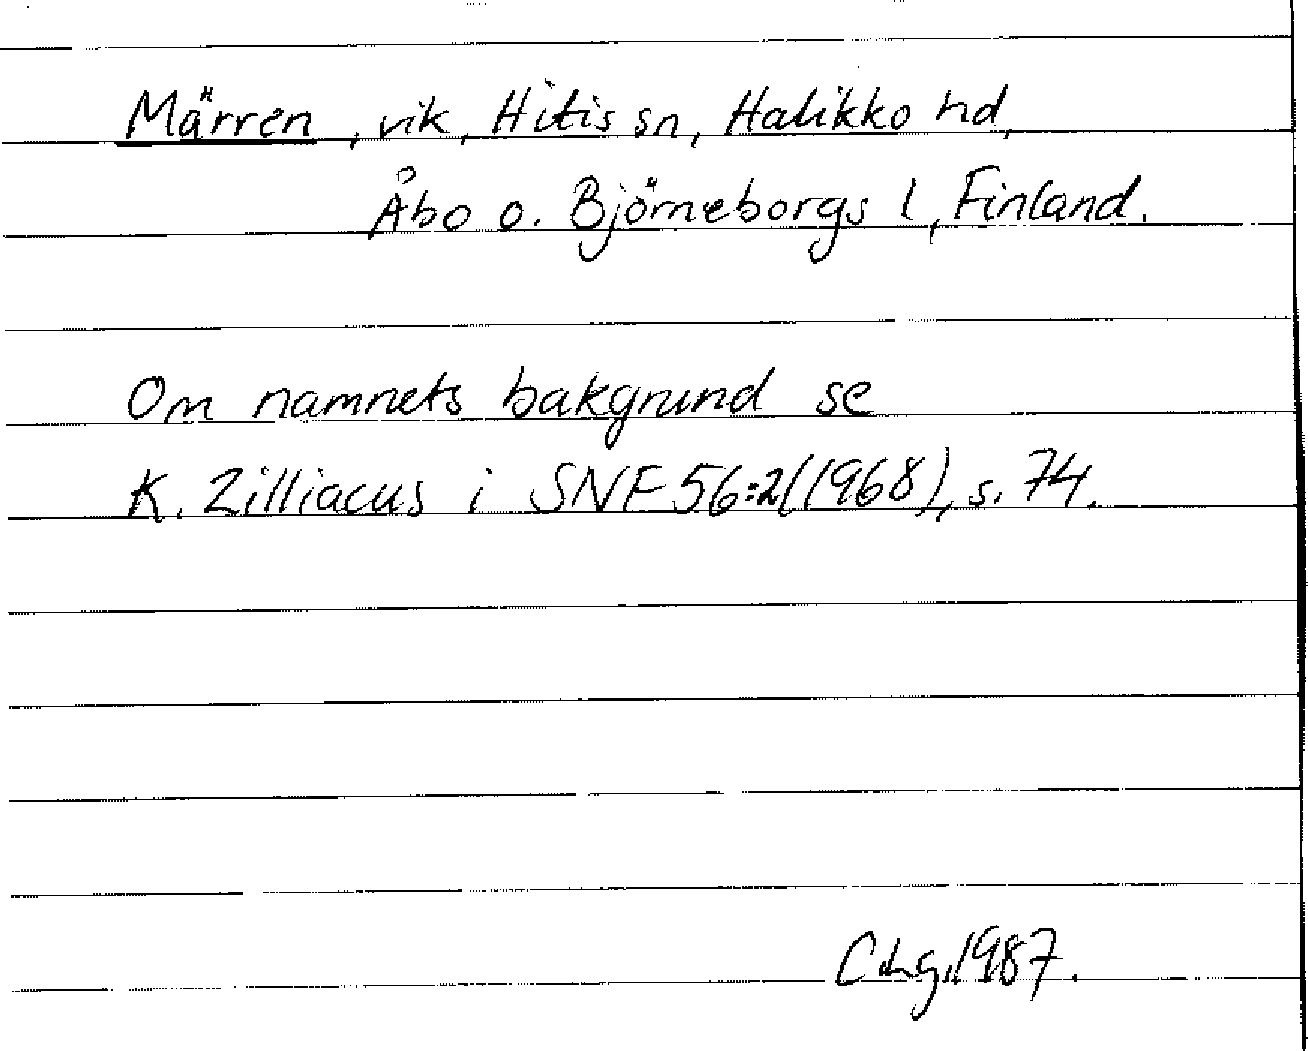 Märren, vik, Hitis sn, Halikko hd,
Åbo o. Björneborgs l, Finland.
Om namnets bakgrund se
K. Zilliacus i SNF 56:2(1968), s. 74.
1987.